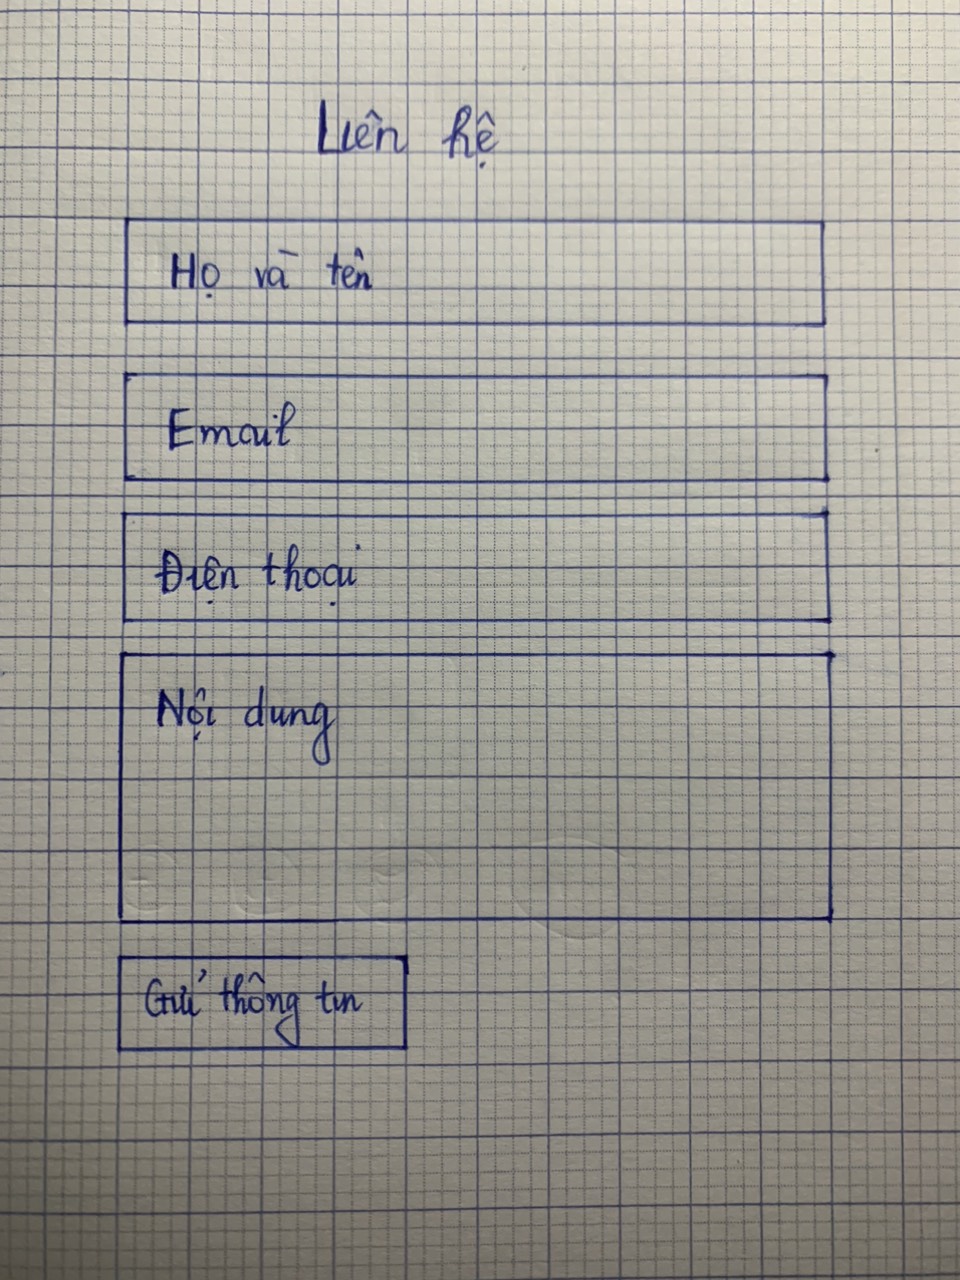 Liên hệ
Họ và tên
Email
Điện thoại
Nội dung
Gửi thông tin